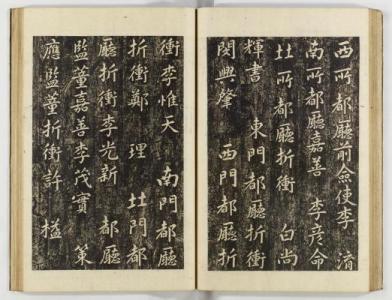 西所都廳前僉使李淯
南所都廳嘉善　李彦命
北所都廳折衝　白尚
輝書　東門都廳折衝
閔興肇　西門都廳折
衝李惟天　南門都廳
折衝鄭　理　北門都
廳折衝李光新　都廳
監董嘉善李茂實　策
應監董折衝許　橀